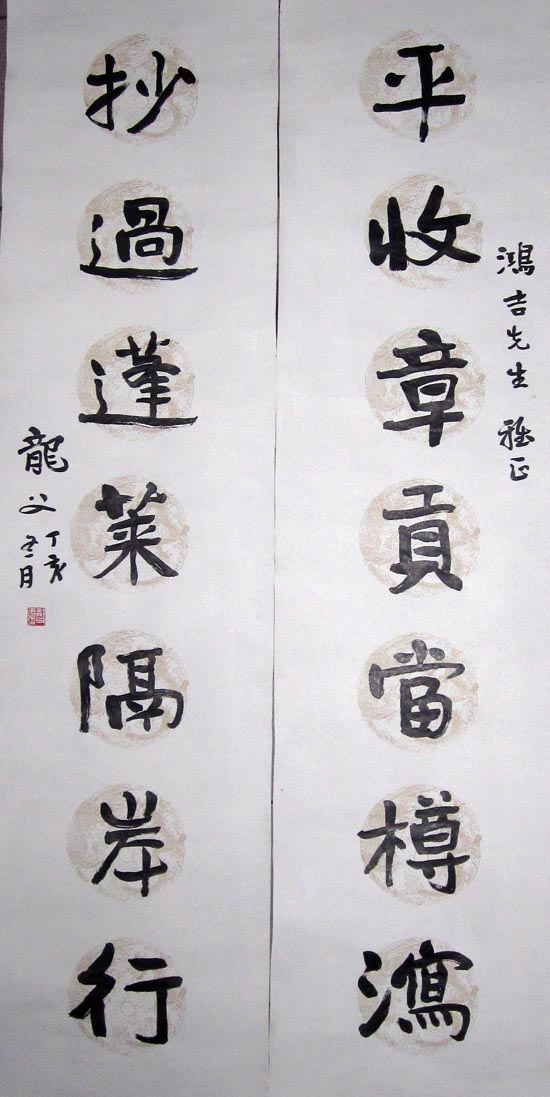 鴻吉先生 雅正
平收章貢當樽瀉
抄過蓬萊隔岸行
龍父
丁亥
冬月